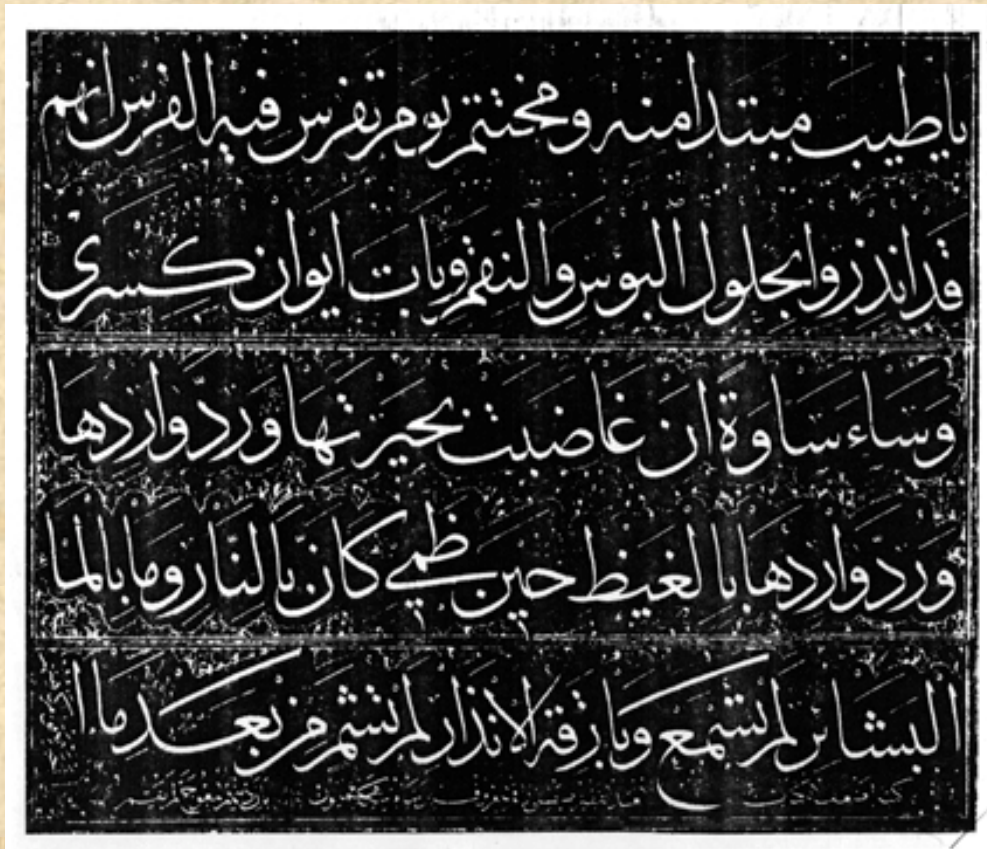 يا طيب مبتدا منه ومختتم يوم تفرس فيه الفرس انهم
قد انذروا بحلول البؤس والنقم وبات ايوان كسرى
وَسَاءَ سَاوَةَ ان غاضت بحيرتها وَرُدّ واردها
وَرُدّ واردها بالغيظ حين ظمي كانّ بالنّار وما بالما
البشائر لم تسمع وبارقة الانذار لم تشم من بعد ما ا